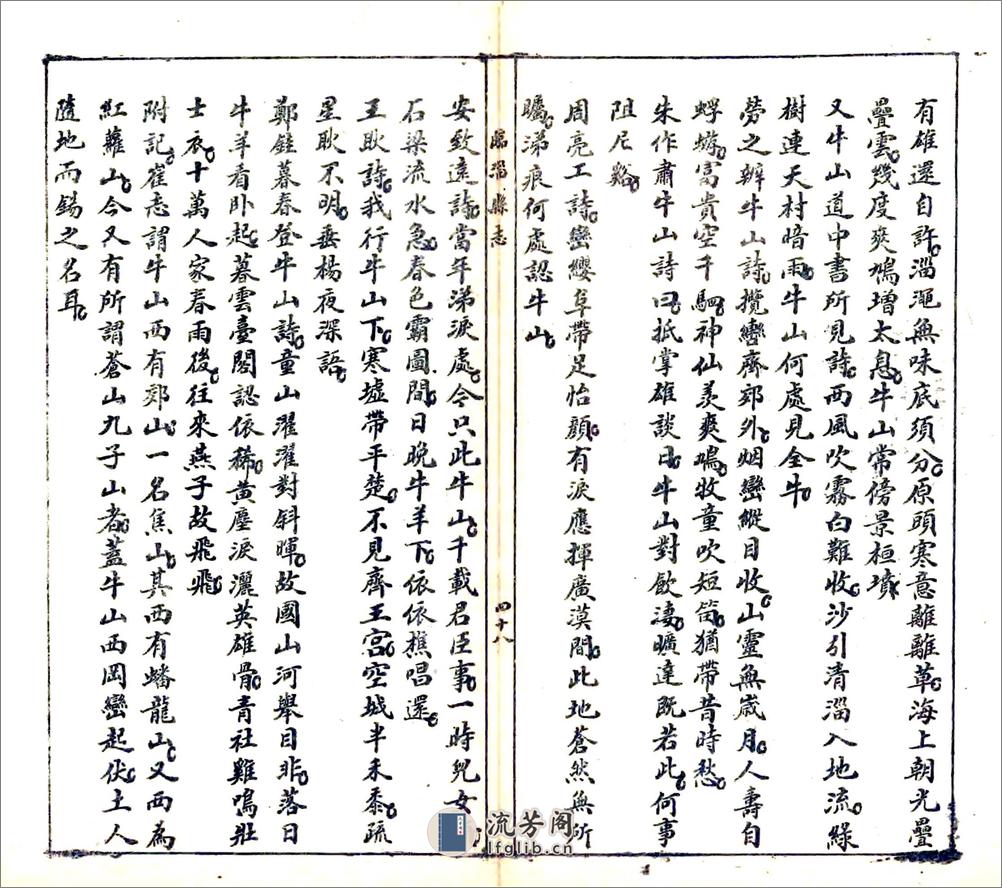 有雄還自許。淄澠無味底須分。原頭寒意離離草。海上朝光疊
疊雲。幾度爽鳩增太息。牛山常傍景桓墳。
又牛山道中書所見詩。西風吹霧白難收。沙引清淄入地流。綠
樹連天村暗雨。牛山何處見全牛。
勞之辨牛山詩。攬轡齊郊外。烟巒縱目收。山靈無歲月。人壽自
蜉蝣。富貴空千駟。神仙羨爽鳩。牧童吹短笛。猶帶昔時愁。
朱作肅牛山詩曰。抵掌雄談日。牛山對飲淒。曠達既若此。何事
阻尼谿。
周亮工詩。巒纓阜帶足怡顏。有淚應揮廣漠間。此地蒼然無所
矚。涕痕何處認牛山。
臨淄縣志
四十八
安致遠詩。當年涕淚處。今只此牛山。千載君臣事。一時兒女
石梁流水急。春色霸圖間。日晚牛羊下。依依樵唱還。
王耿詩。我行牛山下。寒墟帶平楚。不見齊王宮。空城半禾黍。疏
星耿不明。垂楊夜深語。
鄭鉒暮春登牛山詩。童山濯濯對斜暉。故國山河舉目非。落日
牛羊看卧起。暮雲臺閣認依稀。黃塵淚灑英雄骨。青社難鳴壯
士衣。十萬人家春雨後。往來燕子故飛飛。
附記。崔志謂牛山西有郊山。一名焦山。其西有蟠龍山。又西為
紅蘿山。今又有所謂蒼山九子山者。蓋牛山西岡巒起伏。土人
隨地而錫之名耳。
流芳阁
lfglib.cn